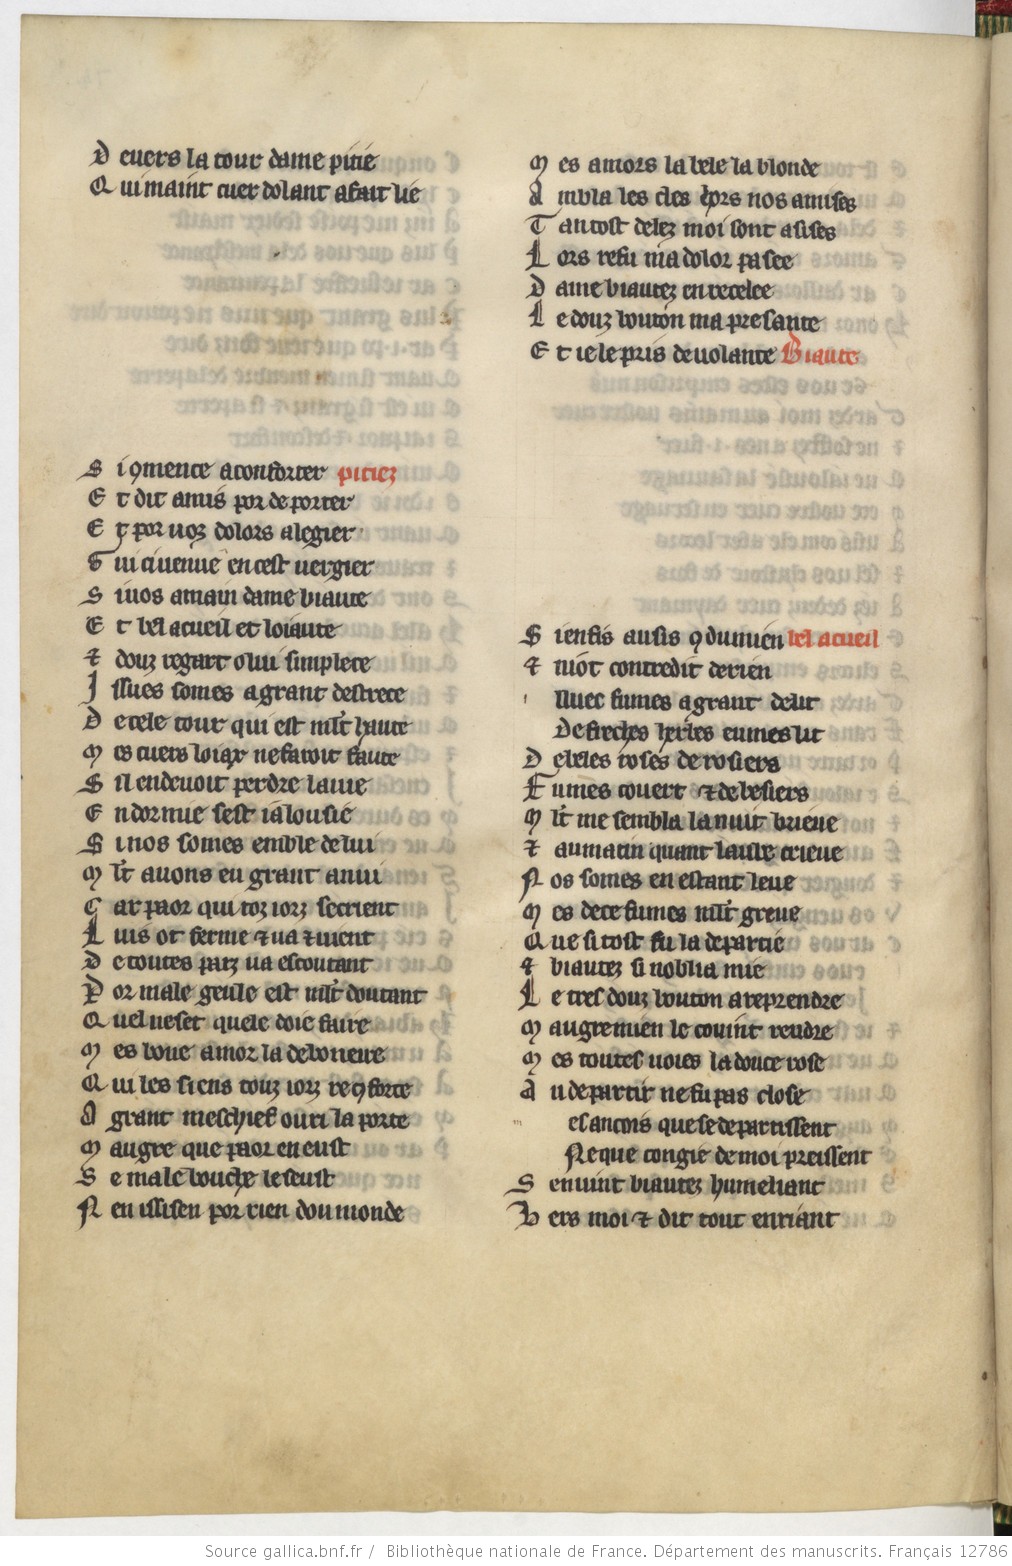 D evers la tour dame pitie
Q ui maint cuer dolant a fait lie
S i ꝯmence a conforter pitiez
E t dit amis por deporter
E t por uoz dolors alegier
S ui ci uenue en cest uergier
S i uos amain dame biaute
E t bel acueil et loiaute
⁊ douz regart o lui simplece
I ssues somes a grant destrece
D e cele tour qui est ml̃t haute
M es cuers loiax ne fauroit faute
S il en deuoit perdre la uie
E ndormie sest ialousie
S i nos somes emble de lui
M l̃t auons eu grant anui
C ar paor qui toz iorz secrient
L uis ot ferme ⁊ ua ⁊ uient
D e toutes parz ua escoutant
P or male geule est ml̃t doutant
Q uel ne set quele doie faire
M es bone amor la debonere
Q ui les siens touz iorz reꝯforte
A grant meschief ouri la porte
M augre que paor en eust
S e male bouche le seust
N en issisen por rien dou monde
M es amors la bele la blonde
A mbla les cles hors nos a mises
T antost delez moi sont asises
L ors refu ma dolor pasee
D ame biautez en recelee
L e douz bouton ma presante
E t ie le pris de uolante Biaute
S i en fis ausis ꝯ du mien bel acueil
⁊ nuōt contredit de rien
Iluec fumes a grant delit
De freches herbes eumes lit
D e beles roses de rosiers
F umes couert ⁊ de besiers
M l̃t me sembla la nuit brieue
⁊ au matin quant laube crieue
N os somes en estant leue
M es de ce fumes ml̃t greue
Q ue si tost fu la departie
⁊ biautez si noblia mie
L e tres douz bouton a reprendre
M augre mien le couint rendre
M es toutes uoies la douce rose
A u departir ne fu pas close
es ancois que se departissent
Ne que congie de moi preissent
S en uint biautez humeliant
V ers moi ⁊ dit tout en riant
Source gallica.bnf.fr / Bibliothèque nationale de France. Département des manuscrits. Français 12786